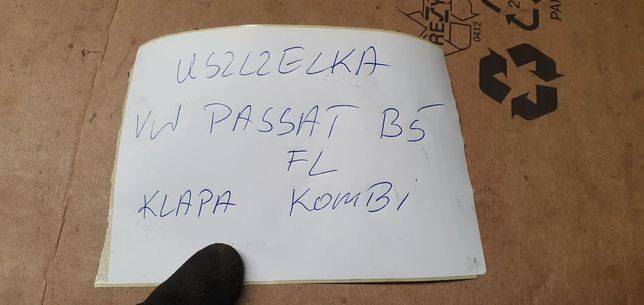 USZCZELKA
VW PASSAT B5
FL
KLAPA KOMBi
RESY
0412